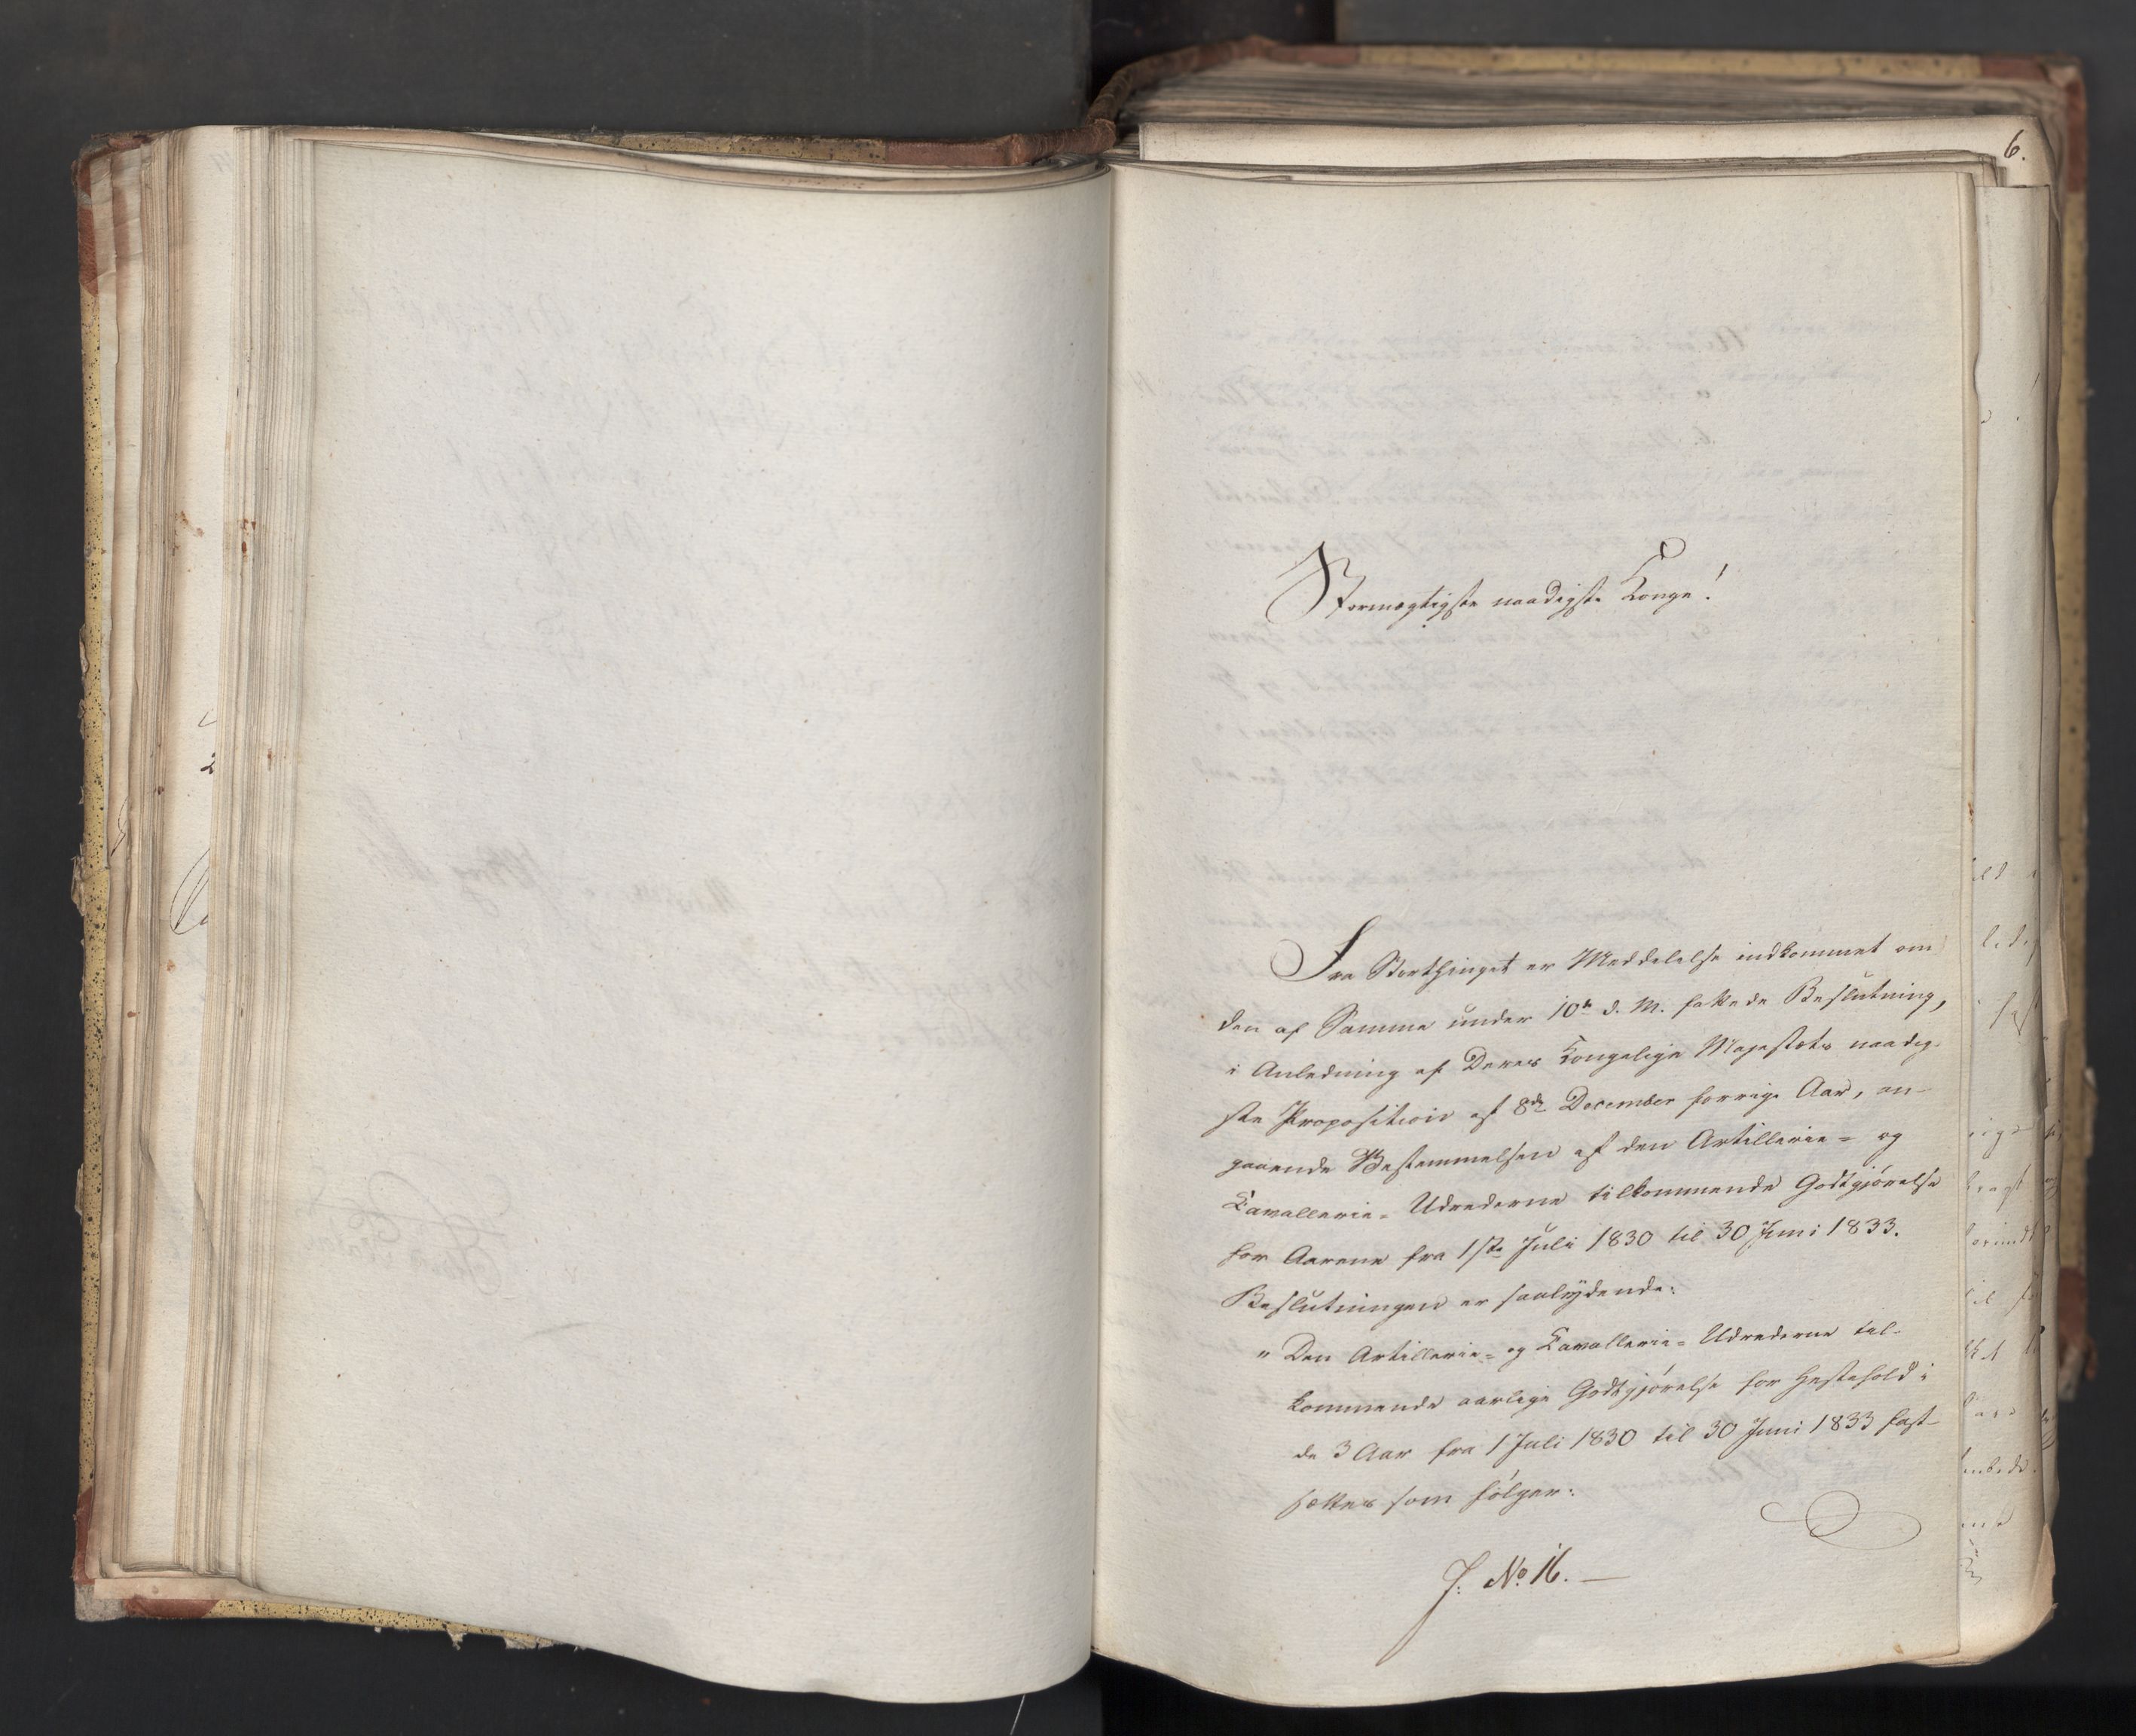 6.
Stormægtigste naadigste Konge!
Fra Storthinget er Meddelelse indkommet om
den af Samme under 10de d. M. fattede Beslutning,
i Anledning af Deres Kongelige Majestæts naadig-
ste Proposition af 8de December forrige Aar, an-
gaaende Bestemmelsen af den Artillerie- og
Cavallerie- Udrederne tilkommende Godtgjørelse
for Aarene fra 1ste Juli 1830 til 30 Juni 1833.
Beslutningen er saalydende:
"Den Artillerie- og Cavallerie- Udrederne til-
kommende aarlige Godtgjørelse for Hestehold i
de 3 Aar fra 1 Juli 1830 til 30 Juni 1833 fast-
sættes som følger:
J. No. 16. —